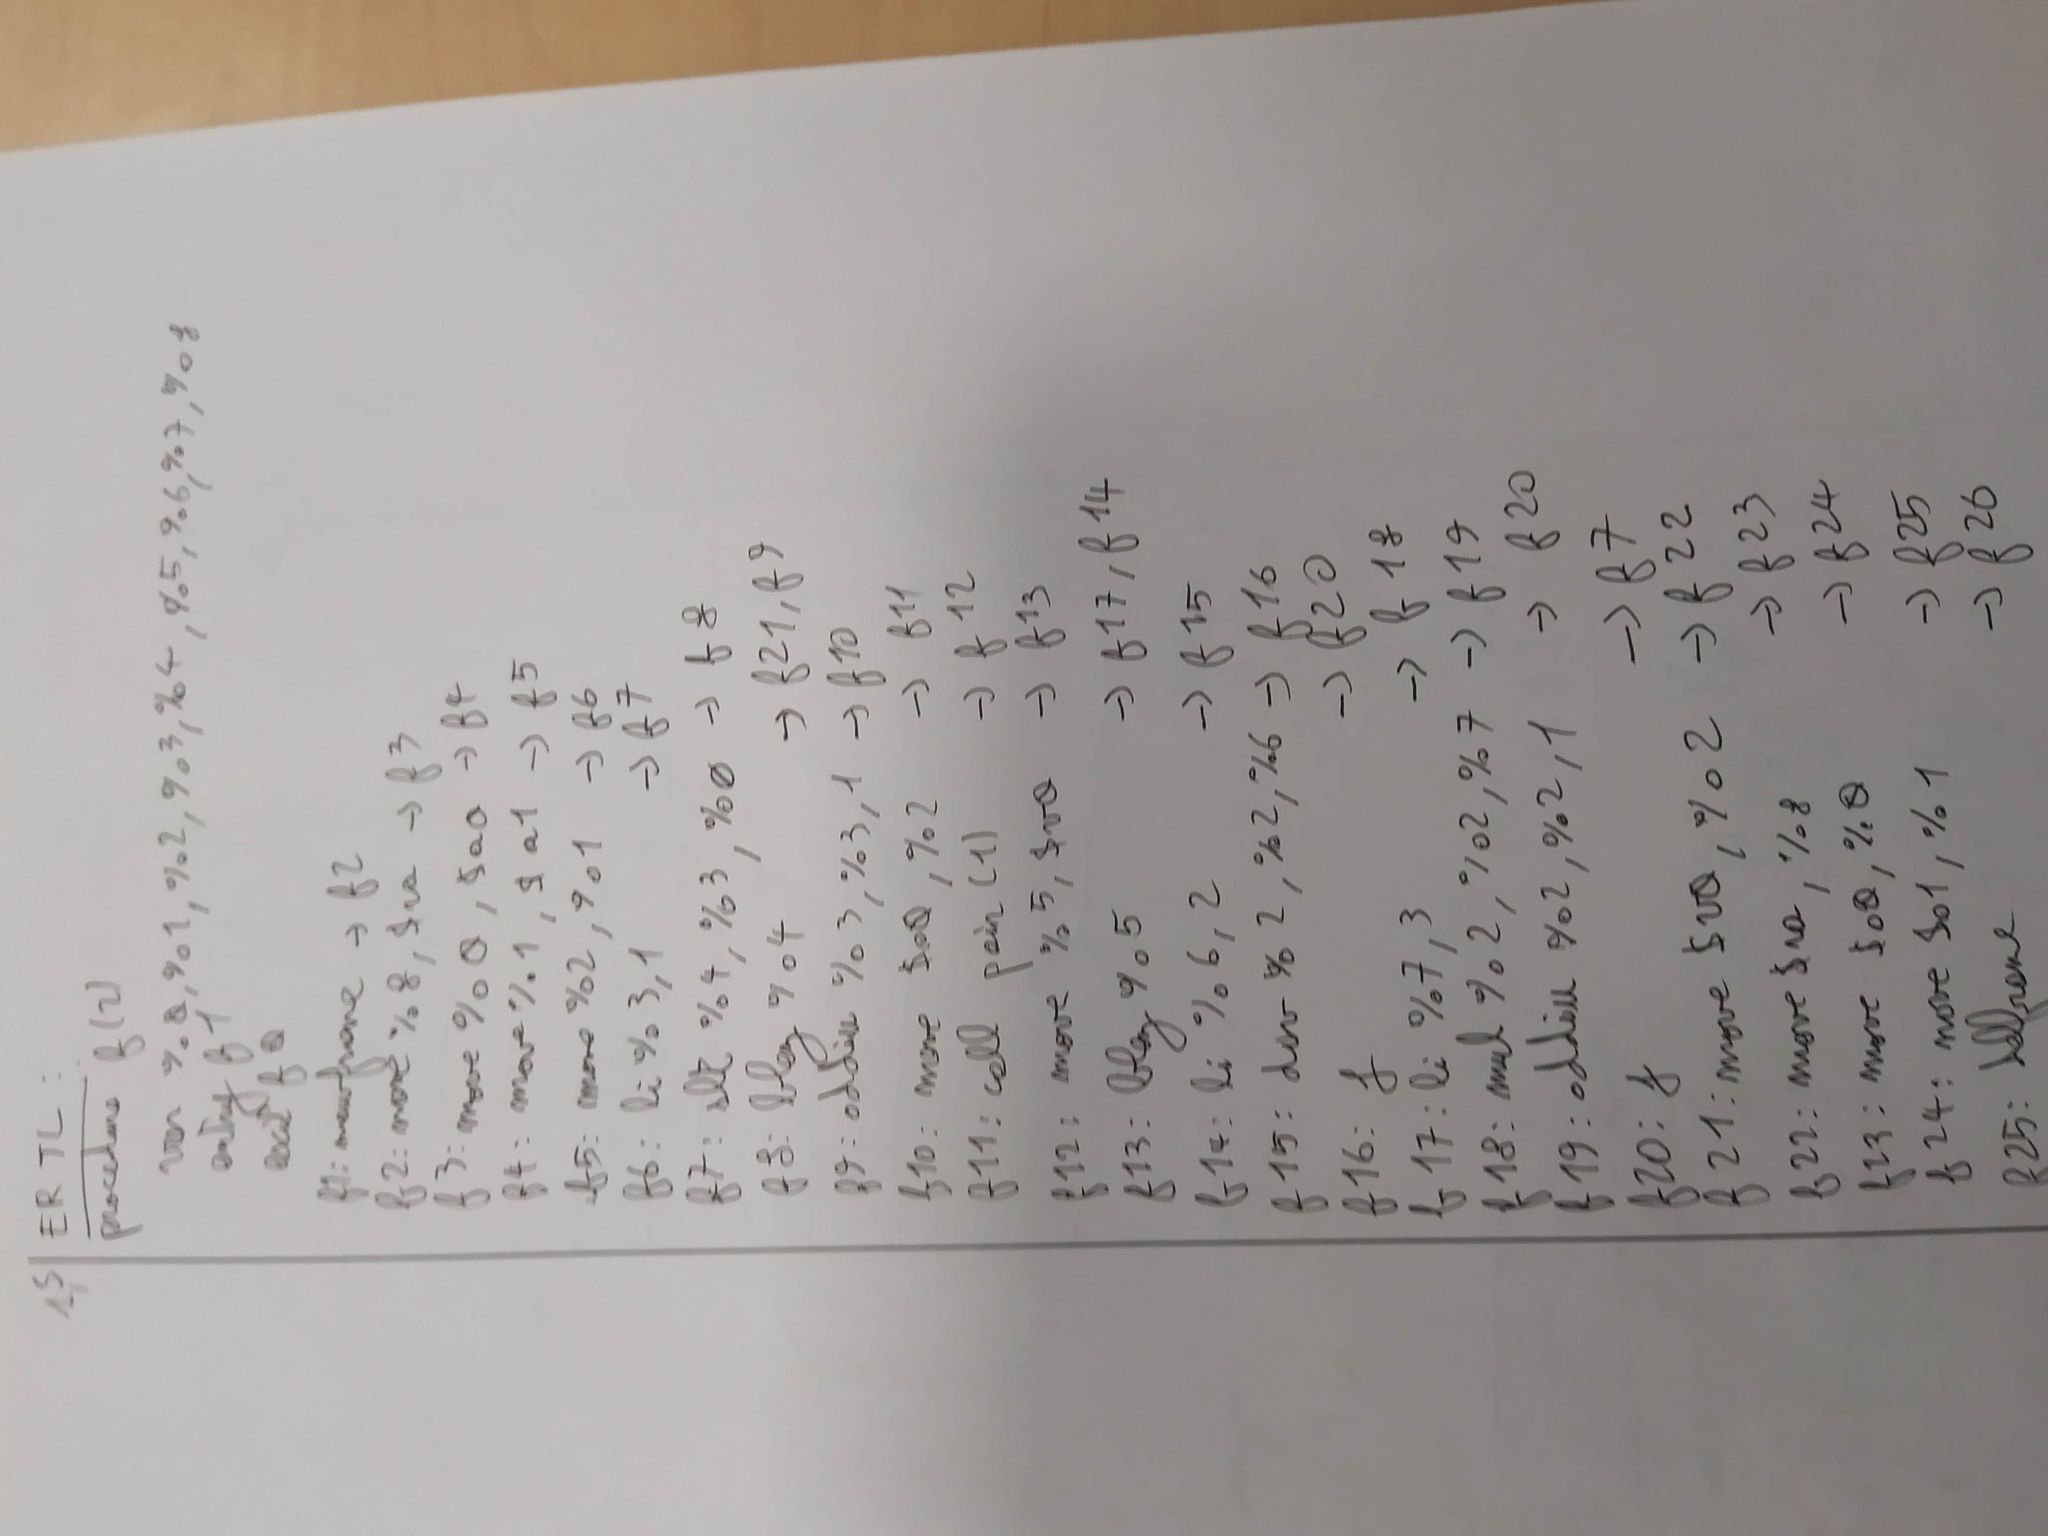 1,5 ERTL :
procedure f(2)
var %0, %1, %2, %3, %4, %5, %6, %7, %8
entry f1
exit f0
f1: newframe → f2
f2: move %8, $ra → f3
f3: move %0, $a0 → f4
f4: move %1, $a1 → f5
f5: move %2, %1 → f6
f6: li %3, 1 → f7
f7: slt %4, %3, %0 → f8
f8: blez %4 → f21, f9
f9: addiu %3, %3, 1 → f10
f10: move $a0, %2 → f11
f11: call pair(1) → f12
f12: move %5, $v0 → f13
f13: blez %5 → f17, f14
f14: li %6, 2 → f15
f15: div %2, %2, %6 → f16
f16: j → f20
f17: li %7, 3 → f18
f18: mul %2, %2, %7 → f19
f19: addiu %2, %2, 1 → f20
f20: j → f7
f21: move $v0, %2 → f22
f22: move $ra, %8 → f23
f23: move $a0, %0 → f24
f24: move $a1, %1 → f25
f25: delframe → f26